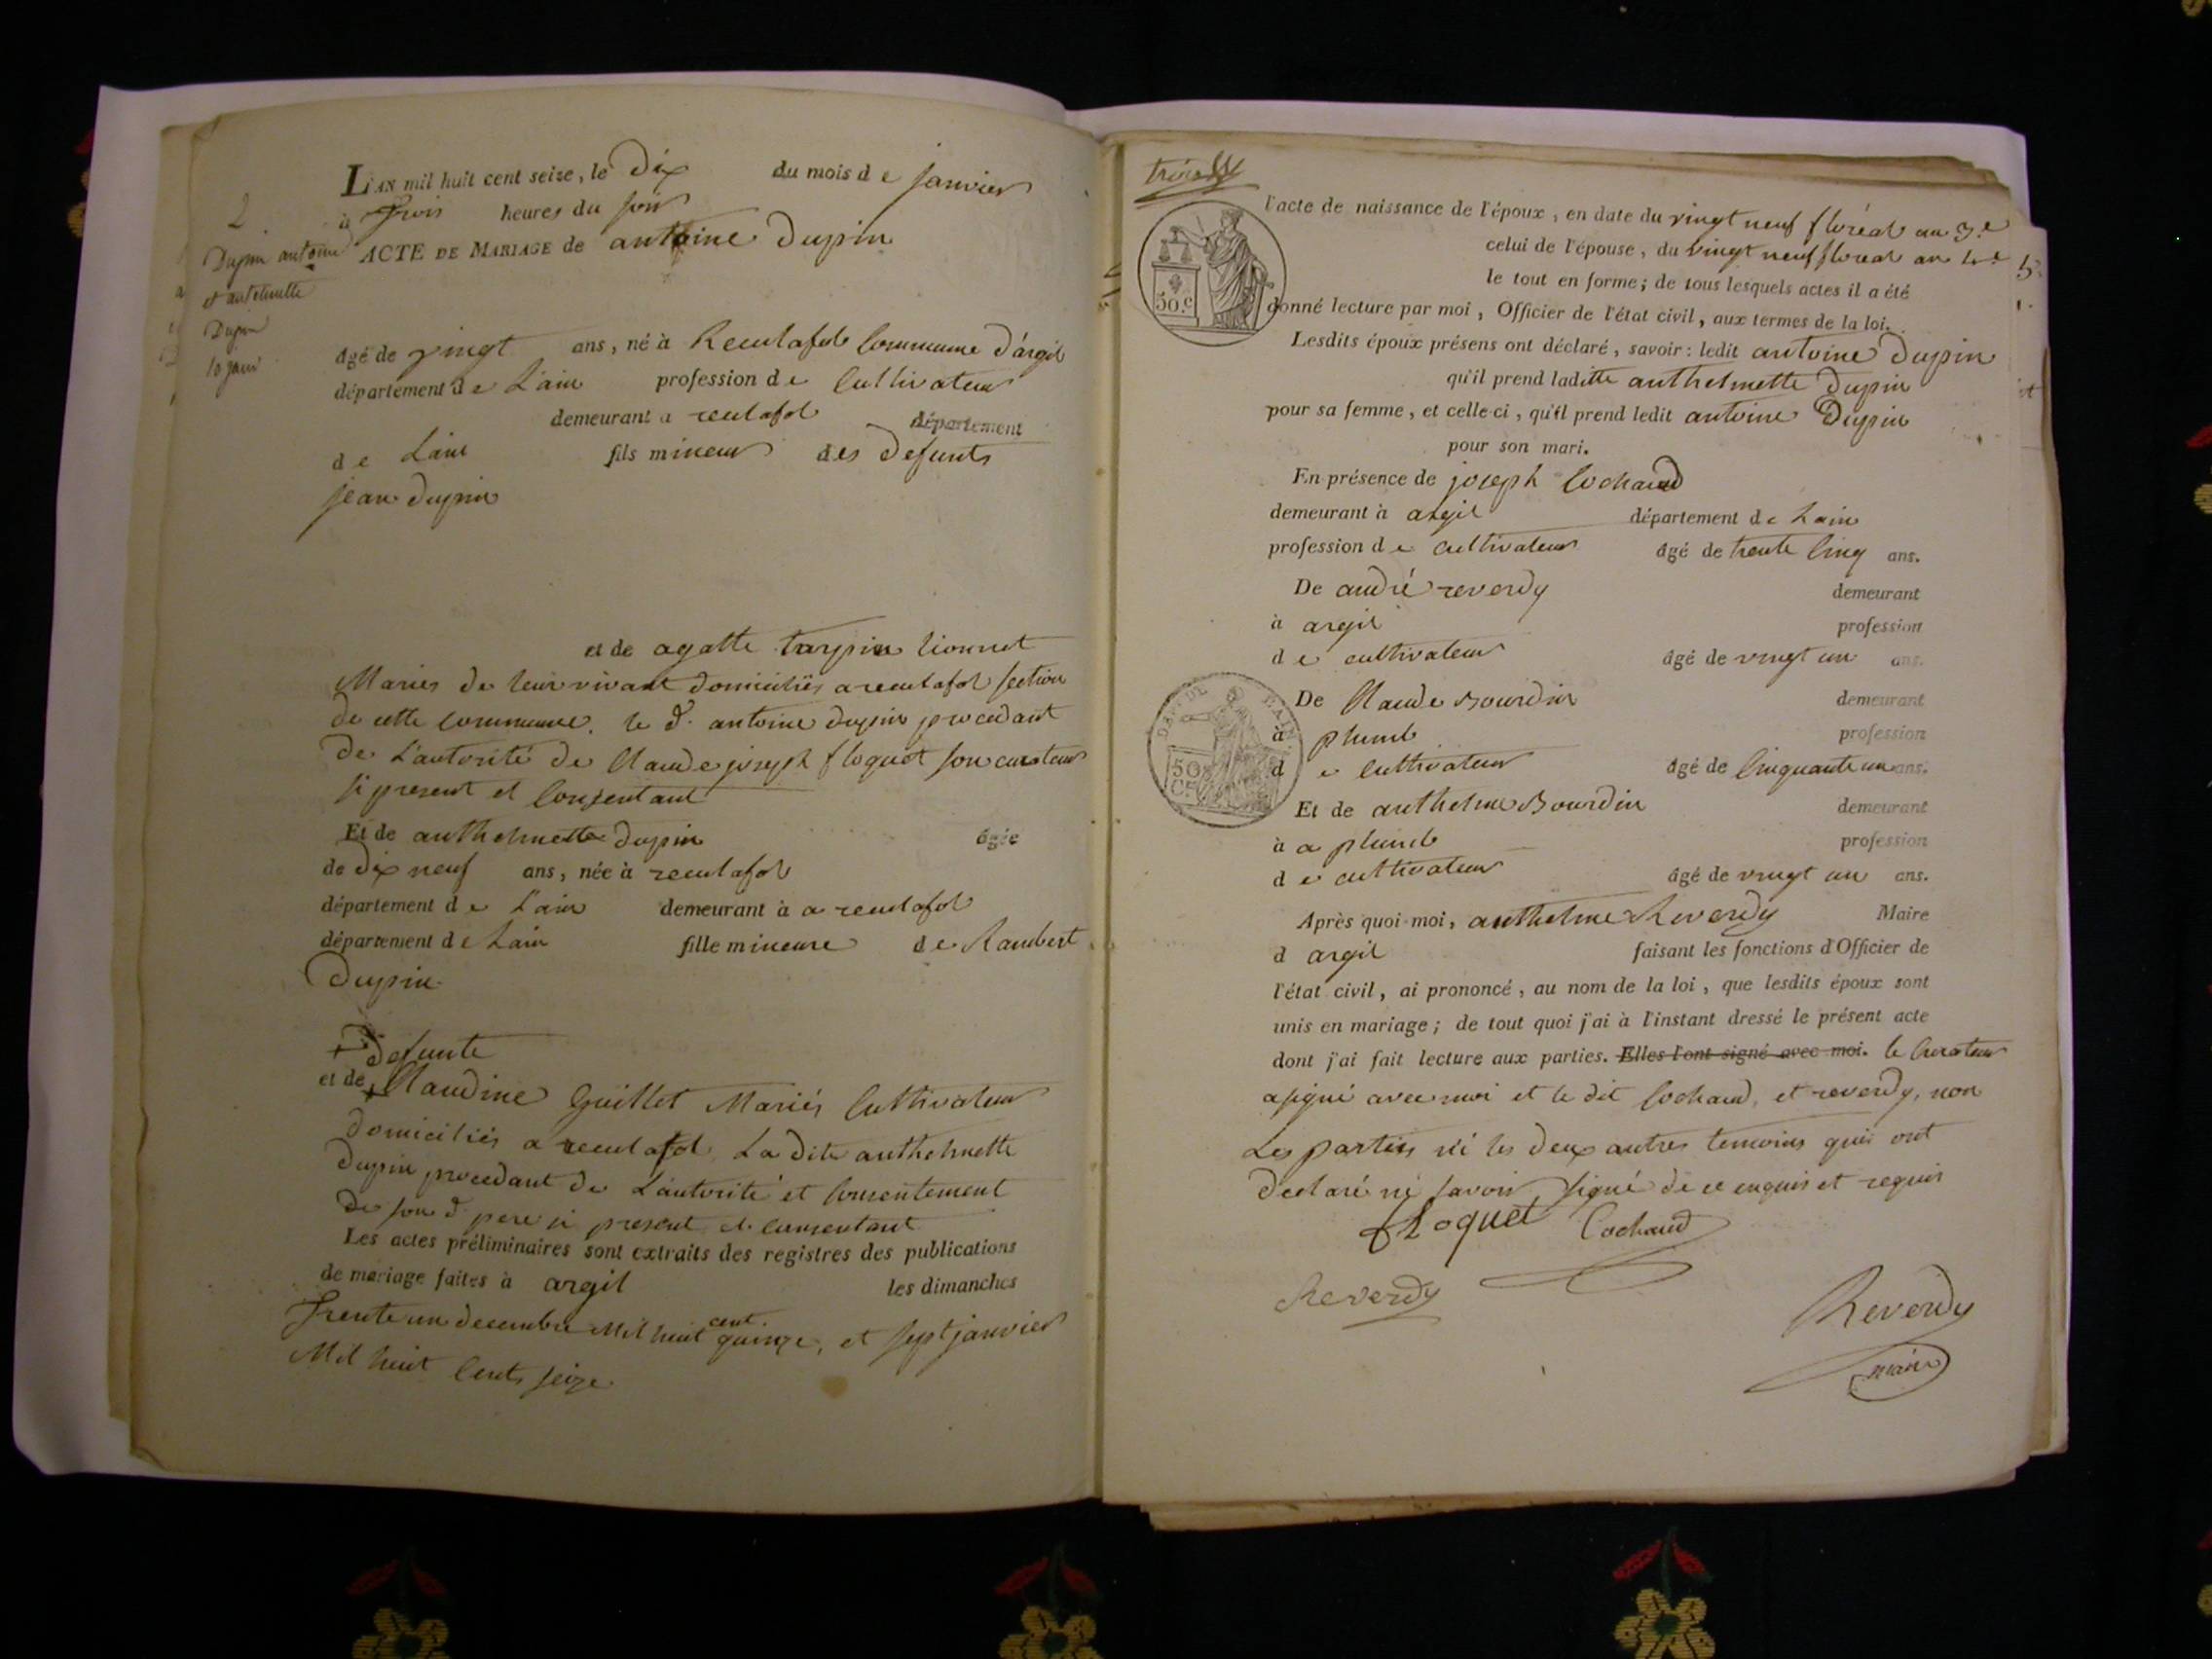 2
Dupin antoine
et antelmette
Dupin
10 janv
L'AN mil huit cent seize, le Dix du mois de janvier
à Trois heures du soir
ACTE DE MARIAGE de antoine Dupin
âgé de vingt ans, né à Reculafol Commune d'argil
département de L'ain profession de Cultivateur
demeurant a reculafol département
de Lain fils mineur des Defunts
jean Dupin
et de agatte tarpin lionnet
Mariés de leur vivant domiciliés a reculafol section
de cette commune. le d. antoine dupin procedant
De L'autorité de Claude joseph floquet son curateur
si present et Consentant
Et de anthelmette Dupin âgée
de Dix neuf ans, née à reculafol
département de L'ain demeurant à a reculafol
département de Lain fille mineure de Rambert
Dupin
+ Defunte
et de + Claudine Guillet Mariés Cultivateur
Domiciliés a reculafol La dite anthelmette
Dupin procedant de L'autorité et Consentement
De son d. pere si present et consentant
Les actes préliminaires sont extraits des registres des publications
de mariage faites à argil les dimanches
Trente un decembre Mil huit cent quinze, et sept janvier
Mil huit Cents seize
trois
50.c
l'acte de naissance de l'époux, en date du vingt neuf floréal an 3.e
celui de l'épouse, du vingt neuf floréal an 4.e
le tout en forme; de tous lesquels actes il a été
donné lecture par moi, Officier de l'état civil, aux termes de la loi.
Lesdits époux présens ont déclaré, savoir: ledit antoine Dupin
qu'il prend laditte anthelmette Dupin
pour sa femme, et celle-ci, qu'il prend ledit antoine Dupin
pour son mari.
En présence de joseph Cochaud
demeurant à argil département de Lain
profession de cultivateur âgé de trente Cinq ans.
De andré reverdy demeurant
à argil profession
de cultivateur âgé de vingt un ans.
DEP. DE L'AIN
50
C.es
De Claude Bourdin demeurant
à plumt profession
de Cultivateur âgé de Cinquante un ans.
Et de anthelme Bourdin demeurant
à a plumt profession
de cultivateur âgé de vingt un ans.
Après quoi moi, anthelme Reverdy Maire
d argil faisant les fonctions d'Officier de
l'état civil, ai prononcé, au nom de la loi, que lesdits époux sont
unis en mariage; de tout quoi j'ai à l'instant dressé le présent acte
dont j'ai fait lecture aux parties. Elles l'ont signé avec moi. le Curateur
a signé avec moi et le dit Cochaud, et reverdy, non
Les parties ni les deux autres temoins qui ont
declaré ne savoir signé de ce enquis et requis
floquet Cochaud
Reverdy
Reverdy
maire